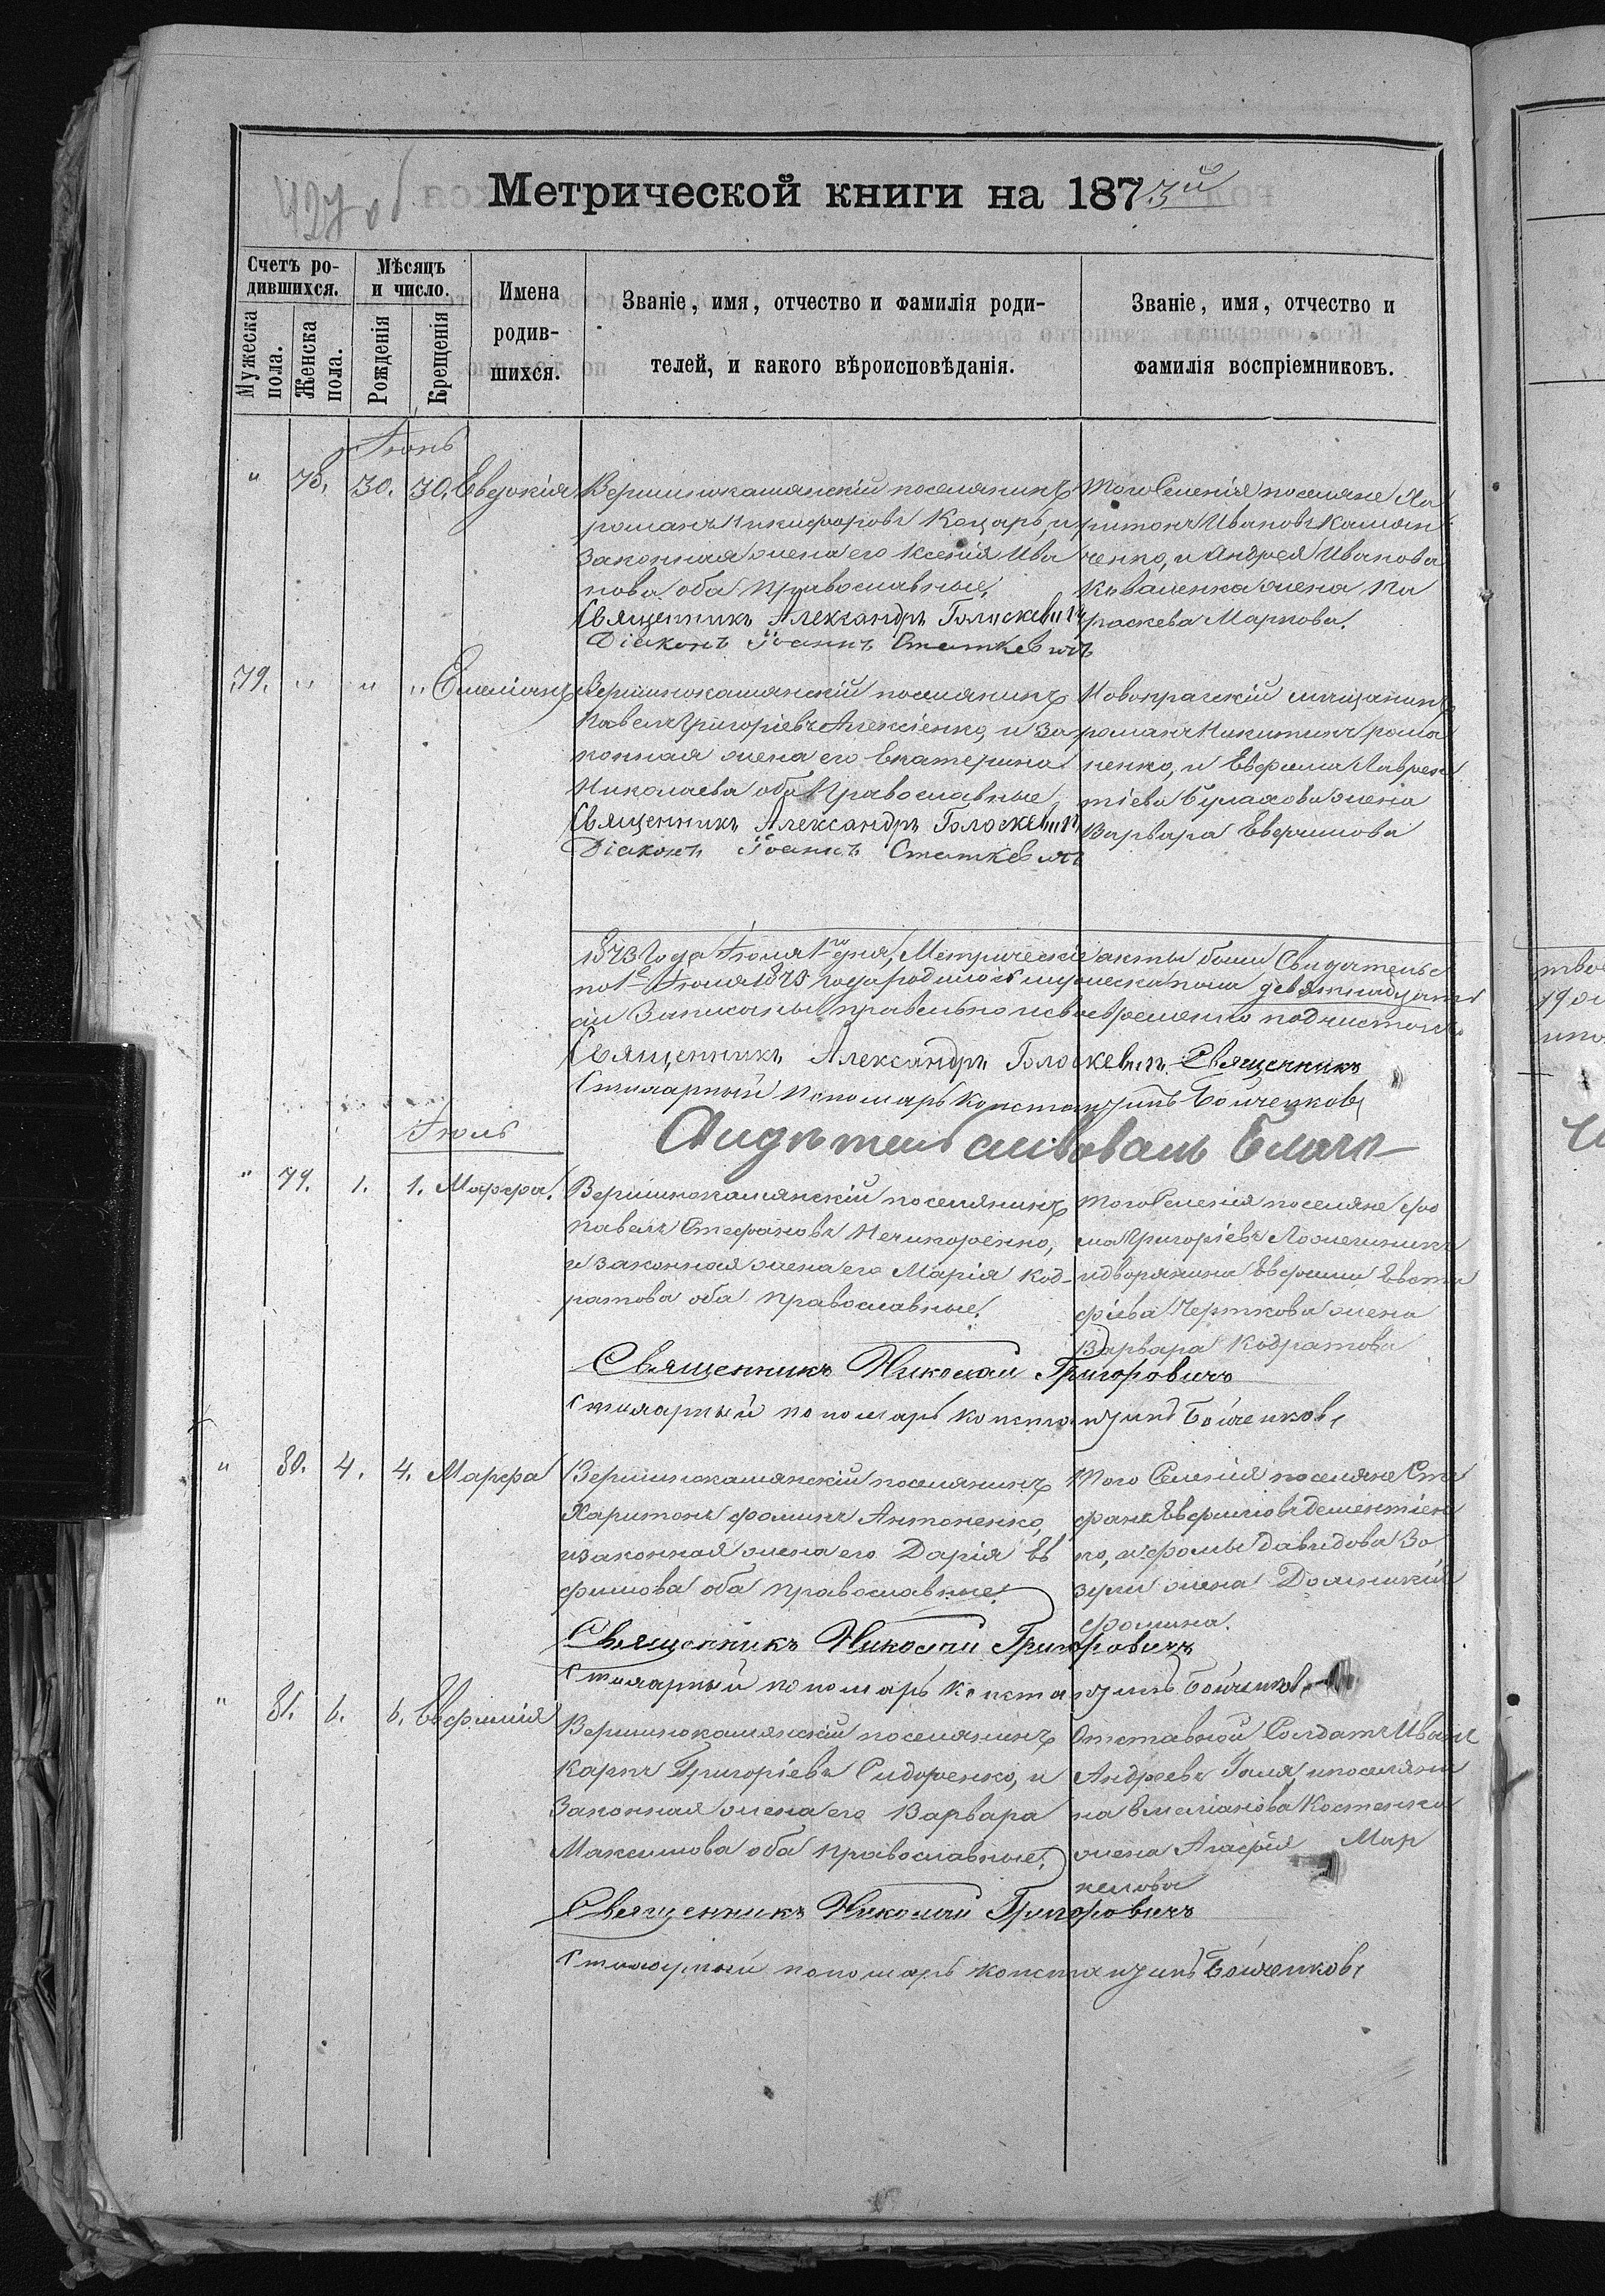 427 об
Метрической книги на 1873й
Счетъ ро-
дившихся.
Мужеска
пола.
Женска
пола.
Мѣсяцъ
и число.
Рожденія
Крещенія
Имена
родив-
шихся.
Званіе, имя, отчество и фамилія роди-
телей, и какого вѣроисповѣданія.
Званіе, имя, отчество и
фамилія воспріемниковъ.
Іюнь
" 78. 30. 30. Евдокія
Вершинокамянскій поселянинъ
романъ Никифоровъ Коцарь, и
Законная жена его Ксенія Ива
нова оба православные,
Священникъ Александръ Голоскевичъ
Діаконъ Іоаннъ Статкевичъ
Того Селенія поселяне Ха
ритонъ Ивановъ Камян
ченко, и Андрея Иванова
Коваленка жена Па
раскева Маркова,
79. " " " Емеліанъ
Вершинокамянскій поселянинъ
Павелъ Григоріевъ Алексіенко, и за
конная жена его Екатерина
Николаева оба Православные
Священникъ Александръ Голоскевичъ
Діаконъ Іоаннъ Статкевичъ
Новопражскій мещанинъ
романъ Никитинъ рома
ненко, и Евфима Лаврен
тіева Булахова жена
Варвара Евфимова
1873 Года Іюля 1го дня, Метрическіе акты были Свидетельс
по 1е Іюля 1873 года родилось мужеска пола девятнадцать
сіи Записаны правельно и своевременно подчистокъ
Священникъ Александръ Голоскевичъ Священникъ
Стихарный Пономарь Константинъ Бойченковъ
Свидѣтельствовалъ Благо
Іюль
" 79. 1. 1. Марфа.
Вершинокамянскій поселянинъ
Павелъ Стефановъ Нечипоренко,
и законная жена его Марія Код-
ратова оба православные,
Священникъ Николай Григоровичъ
Стихарный пономарь Константинъ Бойченковъ
Того Селенія поселяне фо
ма Григоріевъ
и дворянина Евфимія Евста
фіева Черткова жена
Варвара Кодратова
" 80. 4. 4. Марфа
Вершинокамянскій поселянинъ
Харитонъ фоминъ Антоненко,
и законная жена его Дарія Ев
фимова оба православные,
Священникъ Николай Григоровичъ
Стихарный пономарь Константинъ Бойченковъ
Того Селенія поселяне Сте
фанъ Евфимовъ дементіен
ко, и фомы давидова Зо
зули жена Домникія
фомина.
" 81. 6. 6. Евфимія
Вершинокамянскій поселянинъ
Карпъ Григоріевъ Сидоренко, и
Законная жена его Варвара
Максимова оба православные,
Священникъ Николай Григоровичъ
Стихарный пономарь Константинъ Бойченковъ
Отставной Солдатъ Иванъ
Андреевъ Галя, и поселяни
на Емеліанова Костенка
жена Агафія Мар
келова